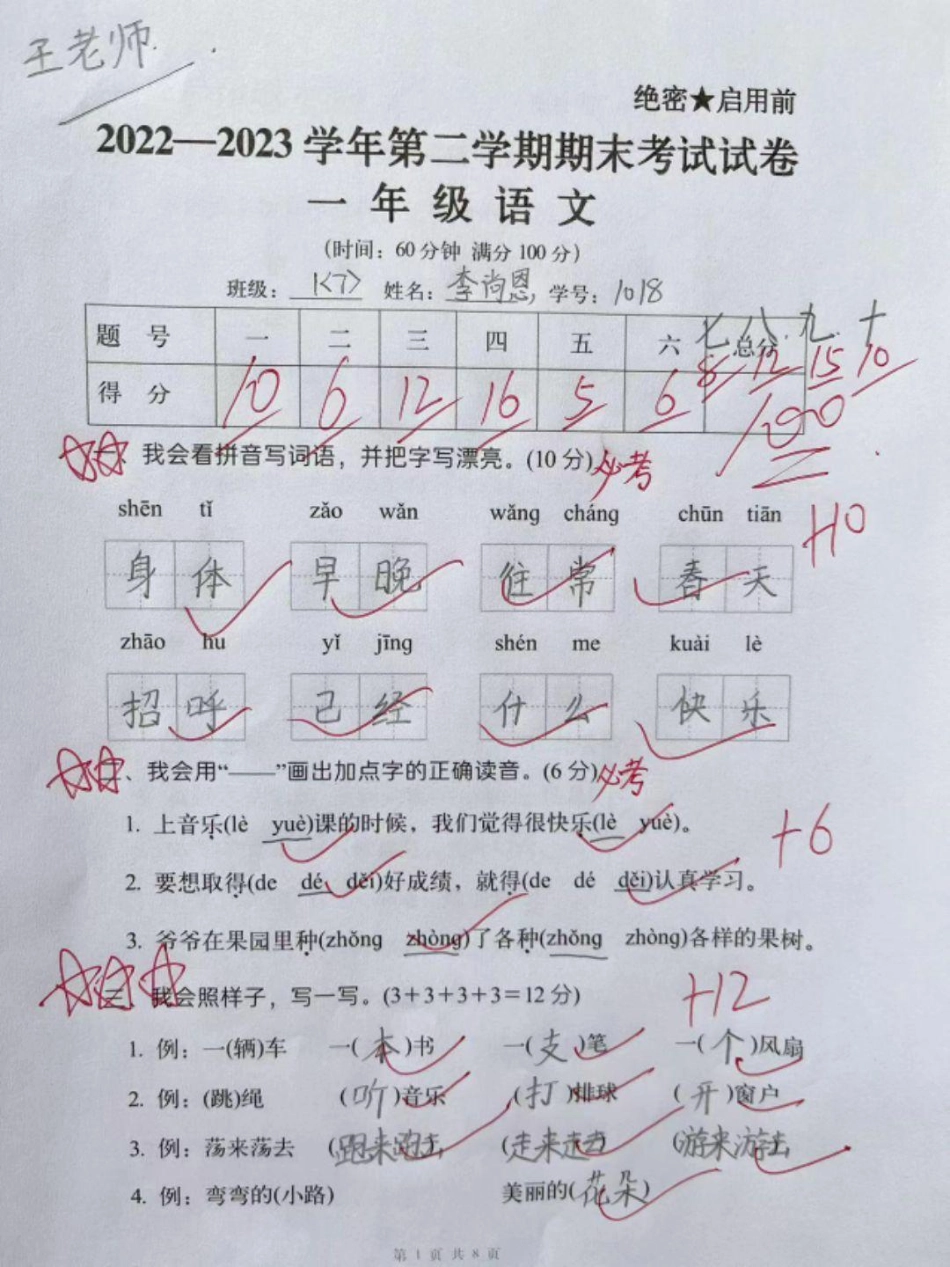 王老师
绝密★启用前
2022—2023学年第二学期期末考试试卷
一年级语文
(时间：60分钟 满分100分)
班级：1<7> 姓名：李尚恩 学号：1018
题 号 一 二 三 四 五 六 总分 七 八 九 十
得 分 10 6 12 16 5 6 8 12 15 10
100
一、我会看拼音写词语，并把字写漂亮。(10分) 必考
shēn tǐ zǎo wǎn wǎng cháng chūn tiān +10
身体 早晚 往常 春天
zhāo hu yǐ jīng shén me kuài lè
招呼 已经 什么 快乐
二、我会用“——”画出加点字的正确读音。(6分) 必考
1. 上音乐(lè yuè)课的时候，我们觉得很快乐(lè yuè)。 +6
2. 要想取得(de dé děi)好成绩，就得(de dé děi)认真学习。
3. 爷爷在果园里种(zhǒng zhòng)了各种(zhǒng zhòng)各样的果树。
三、我会照样子，写一写。(3+3+3+3=12分) +12
1. 例：一(辆)车 一(本)书 一(支)笔 一(个)风扇
2. 例：(跳)绳 (听)音乐 (打)排球 (开)窗户
3. 例：荡来荡去 (跑来跑去 (走来走去 (游来游去
4. 例：弯弯的(小路) 美丽的(花朵)
第1页共8页